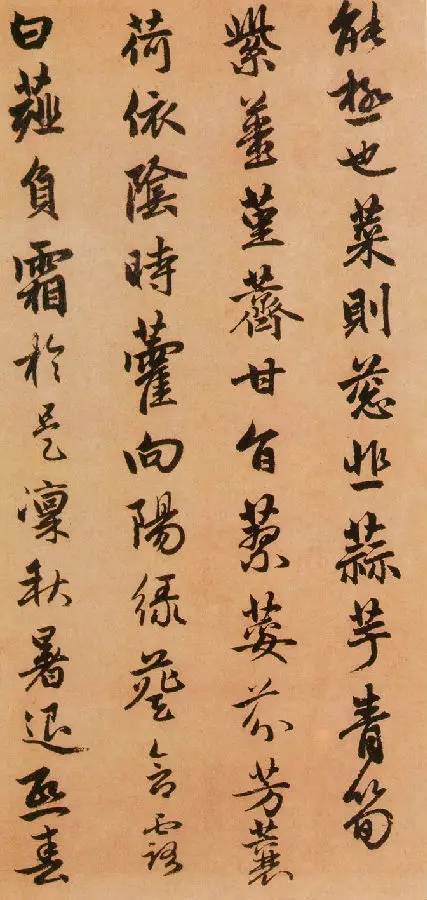 能極也菜則葱韭蒜芋青筍
紫薑堇薺甘旨蓼荽芬芳蘘
荷依陰時藿向陽綠葵含露
白薤負霜於是凜秋暑退熙春